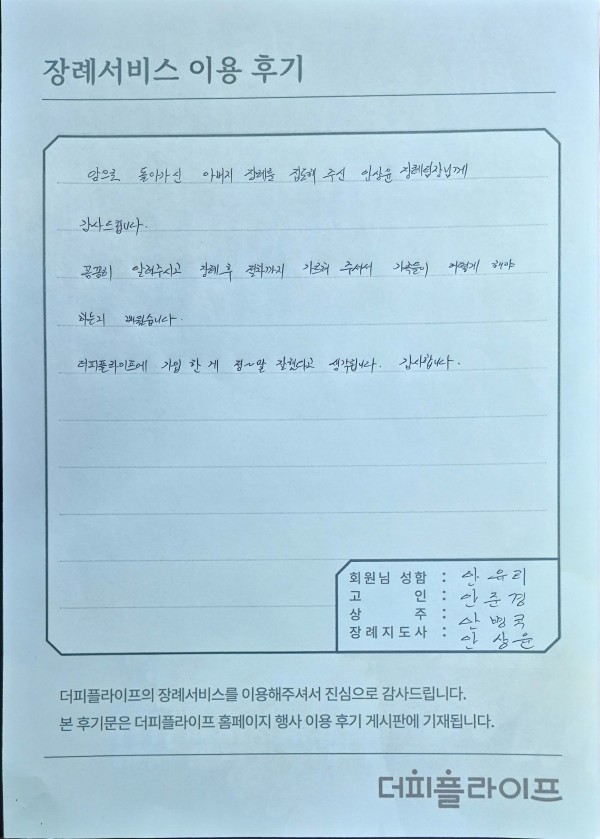 장례서비스 이용 후기
암으로 돌아가신 아버지 장례를 진행해 주신 인상윤 장례팀장님께
감사드립니다.
꼼꼼히 알려주시고 장례 후 절차까지 가르쳐 주셔서 가족들이 어떻게 해야
하는지 배웠습니다.
더피플라이프에 가입 한 게 정~말 잘했다고 생각됩니다. 감사합니다.
회원님 성함 : 안유리
고 인 : 안준경
상 주 : 안병국
장례지도사 : 인상윤
더피플라이프의 장례서비스를 이용해주셔서 진심으로 감사드립니다.
본 후기문은 더피플라이프 홈페이지 행사 이용 후기 게시판에 기재됩니다.
더피플라이프